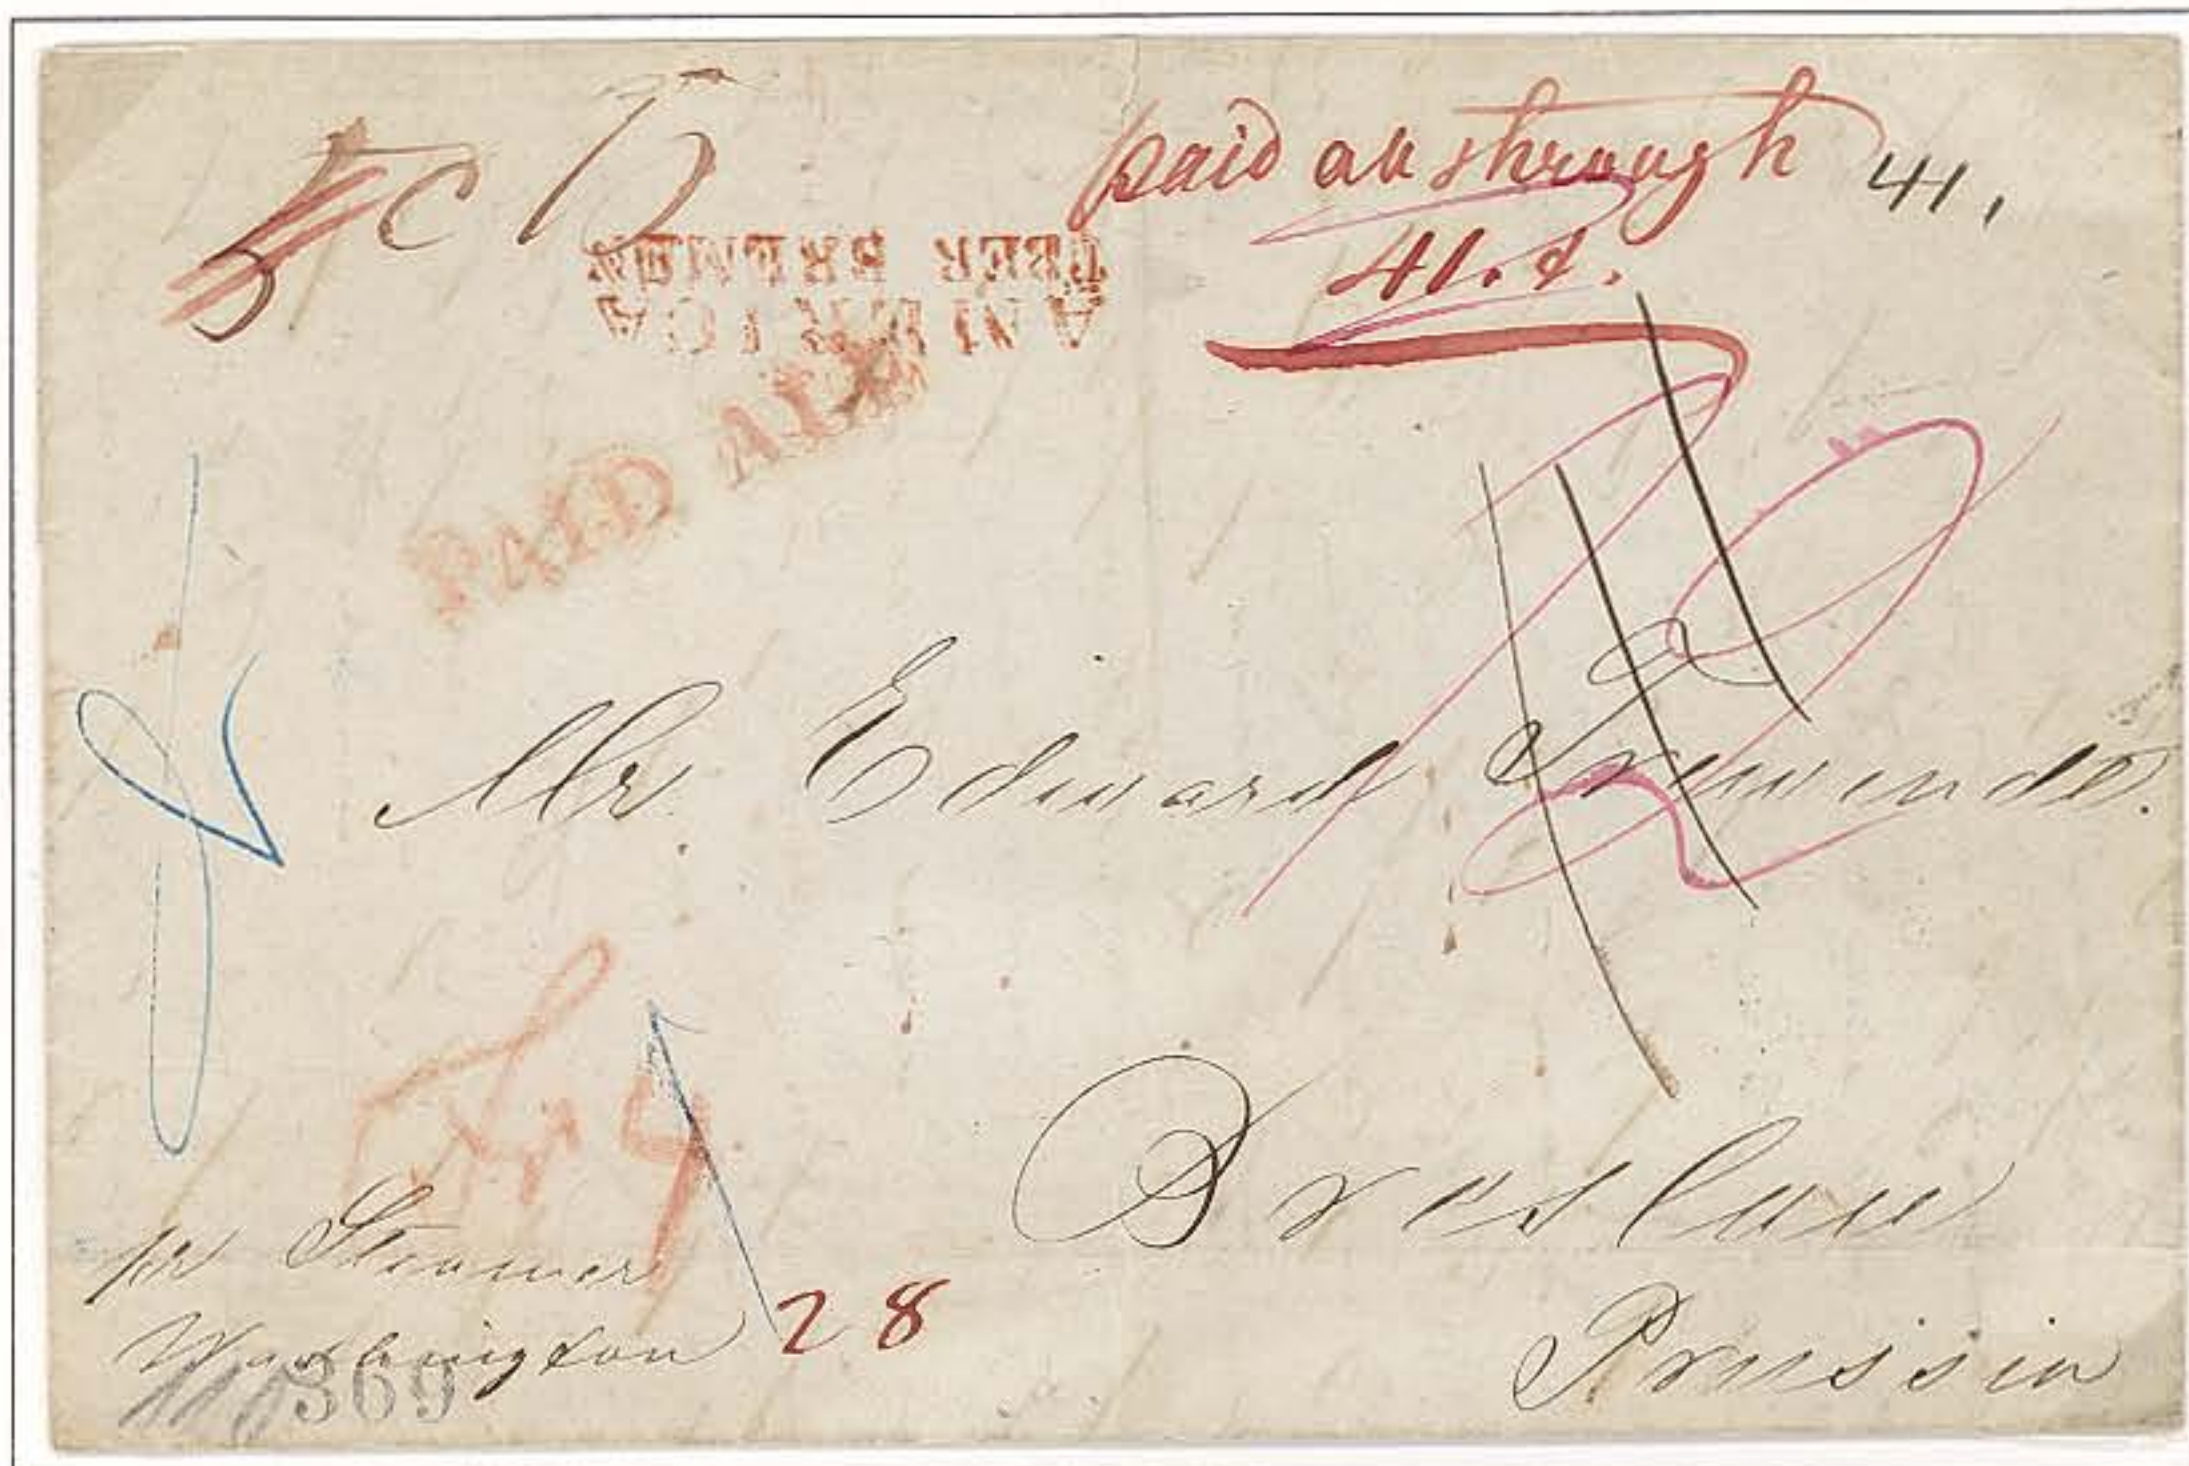 paid all through 41,
41. c.
AMERICA
ÜBER BREMEN
PAID ALL
Mr. Edward
Breslau
Prussia
per Steamer
Washington 28
369